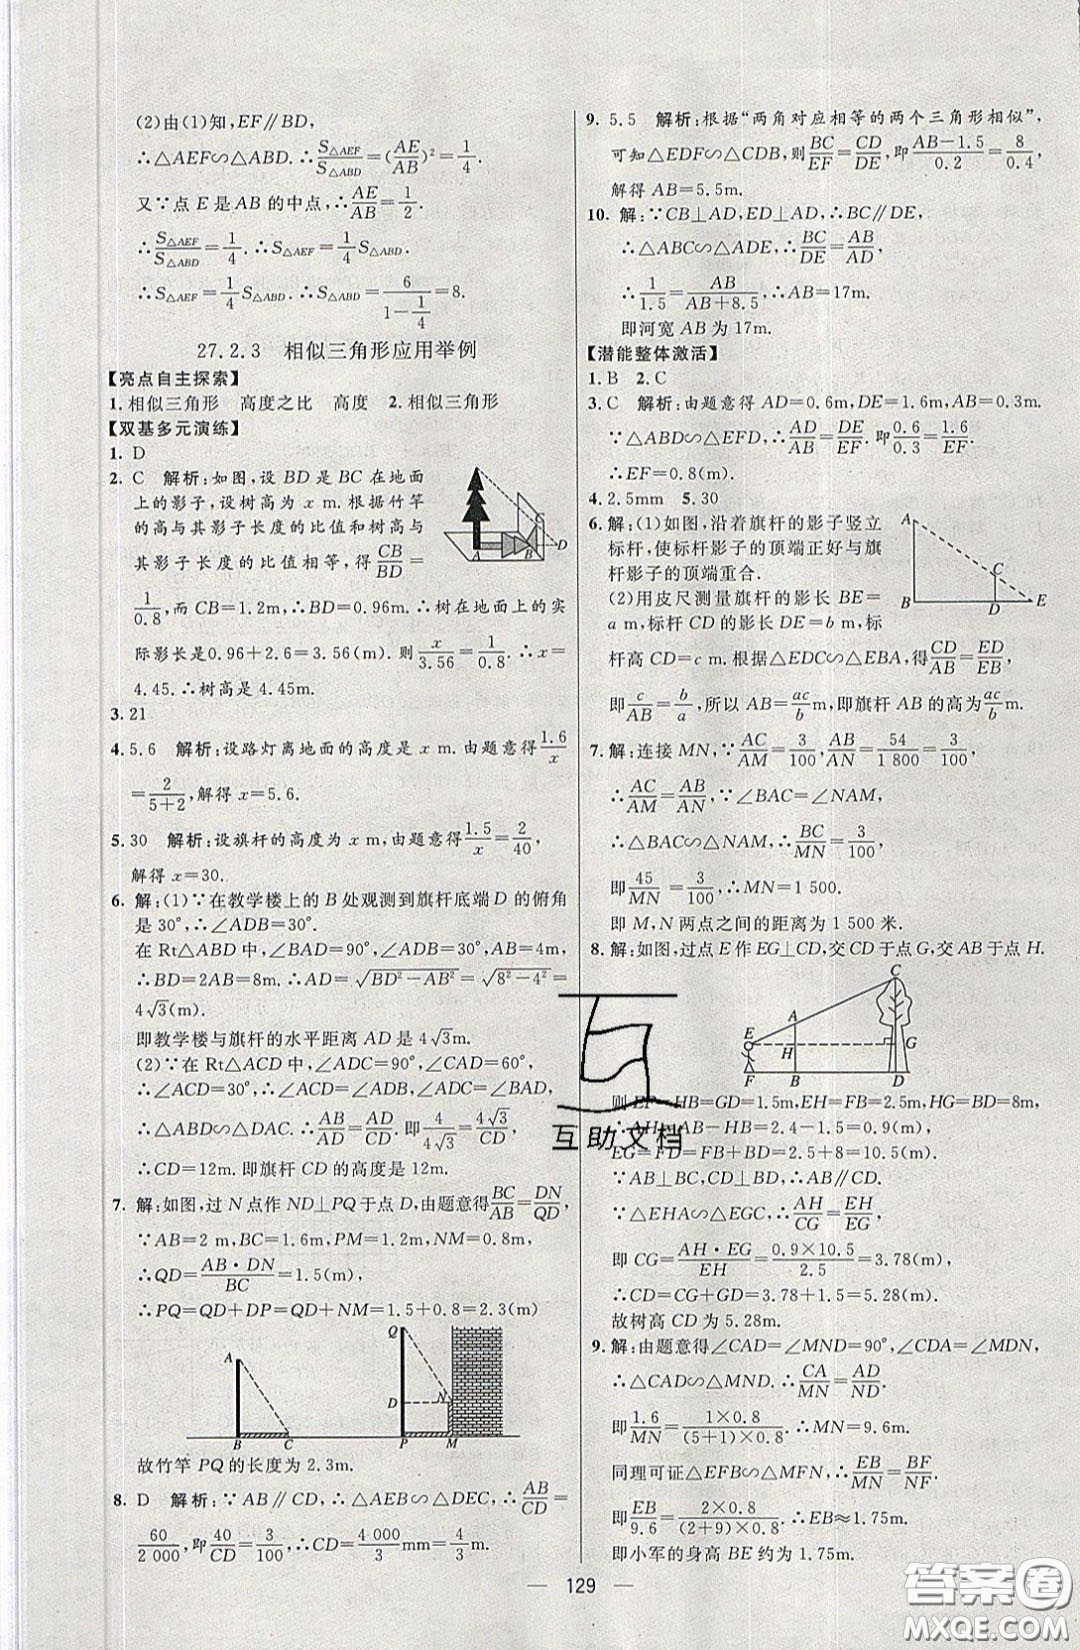 (2)由(1)知,EF∥BD,
∴△AEF∽△ABD.∴S△AEF/S△ABD=(AE/AB)²=1/4.
又∵点 E 是 AB 的中点,∴AE/AB=1/2.
∴S△AEF/S△ABD=1/4.∴S△AEF=1/4 S△ABD.
∴S△AEF=1/4 S△ABD.∴S△ABD=6/(1-1/4)=8.
27.2.3 相似三角形应用举例
【亮点自主探索】
1.相似三角形 高度之比 高度 2.相似三角形
【双基多元演练】
1. D
2. C 解析:如图,设 BD 是 BC 在地面
上的影子,设树高为 x m.根据竹竿
的高与其影子长度的比值和树高与
其影子长度的比值相等,得CB/BD=
1/0.8,而 CB=1.2m,∴BD=0.96m.∴树在地面上的实
际影长是0.96+2.6=3.56(m).则x/3.56=1/0.8.∴x=
4.45.∴树高是 4.45m.
A B C D
3. 21
4. 5.6 解析:设路灯离地面的高度是 x m.由题意得1.6/x
=2/(5+2),解得 x=5.6.
5. 30 解析:设旗杆的高度为 x m,由题意得1.5/x=2/40,
解得 x=30.
6. 解:(1)∵在教学楼上的 B 处观测到旗杆底端 D 的俯角
是 30°,∴∠ADB=30°.
在 Rt△ABD 中,∠BAD=90°,∠ADB=30°,AB=4m,
∴BD=2AB=8m.∴AD=√(BD²-AB²)=√(8²-4²)=
4√3(m).
即教学楼与旗杆的水平距离 AD 是 4√3m.
(2)∵在 Rt△ACD 中,∠ADC=90°,∠CAD=60°,
∴∠ACD=30°.∴∠ACD=∠ADB,∠ADC=∠BAD.
∴△ABD∽△DAC.∴AB/AD=AD/CD.即4/(4√3)=4√3/CD.
∴CD=12m.即旗杆 CD 的高度是 12m.
7. 解:如图,过 N 点作 ND⊥PQ 于点 D,由题意得BC/AB=DN/QD,
∵AB=2 m,BC=1.6m,PM=1.2m,NM=0.8m,
∴QD=AB·DN/BC=1.5(m).
∴PQ=QD+DP=QD+NM=1.5+0.8=2.3(m)
A B C Q D N P M
故竹竿 PQ 的长度为 2.3m.
8. D 解析:∵AB∥CD,∴△AEB∽△DEC,∴AB/CD=
60/2 000,即40/CD=3/100.∴CD=4 000/3 mm=4/3 m.
9. 5.5 解析:根据“两角对应相等的两个三角形相似”,
可知△EDF∽△CDB,则BC/EF=CD/DE,即(AB-1.5)/0.2=8/0.4,
解得 AB=5.5m.
10. 解:∵CB⊥AD,ED⊥AD,∴BC∥DE,
∴△ABC∽△ADE,∴BC/DE=AB/AD,
∴1/1.5=AB/(AB+8.5),∴AB=17m.
即河宽 AB 为 17m.
【潜能整体激活】
1. B 2. C
3. C 解析:由题意得 AD=0.6m,DE=1.6m,AB=0.3m.
∵△ABD∽△EFD,∴AD/AB=DE/EF.即0.6/0.3=1.6/EF.
∴EF=0.8(m)
4. 2.5mm 5. 30
6. 解:(1)如图,沿着旗杆的影子竖立
标杆,使标杆影子的顶端正好与旗
杆影子的顶端重合.
(2)用皮尺测量旗杆的影长 BE=
a m,标杆 CD 的影长 DE=b m,标
杆高 CD=c m.根据△EDC∽△EBA,得CD/AB=ED/EB,
即c/AB=b/a,所以 AB=ac/b m,即旗杆 AB 的高为ac/b m.
A B C D E
7. 解:连接 MN,∵AC/AM=3/100,AB/AN=54/1 800=3/100,
∴AC/AM=AB/AN.又∵∠BAC=∠NAM,
∴△BAC∽△NAM,∴BC/MN=3/100.
即45/MN=3/100,∴MN=1 500.
即 M,N 两点之间的距离为 1 500 米.
8. 解:如图,过点 E 作 EG⊥CD,交 CD 于点 G,交 AB 于点 H.
E A C H G F B D
则 EF=HB=GD=1.5m,EH=FB=2.5m,HG=BD=8m,
∴AH=AB-HB=2.4-1.5=0.9(m),
EG=FD=FB+BD=2.5+8=10.5(m).
∵AB⊥BD,CD⊥BD,∴AB∥CD,
∴△EHA∽△EGC,∴AH/CG=EH/EG,
即 CG=AH·EG/EH=0.9×10.5/2.5=3.78(m).
∴CD=CG+GD=3.78+1.5=5.28(m).
故树高 CD 为 5.28m.
9. 解:由题意得∠CAD=∠MND=90°,∠CDA=∠MDN,
∴△CAD∽△MND.∴CA/MN=AD/ND.
即1.6/MN=1×0.8/((5+1)×0.8).∴MN=9.6m.
同理可证△EFB∽△MFN,∴EB/MN=BF/NF.
即EB/9.6=2×0.8/((2+9)×0.8).∴EB≈1.75m.
即小军的身高 BE 约为 1.75m.
互助文档
— 129 —
答案圈
MXQE.COM